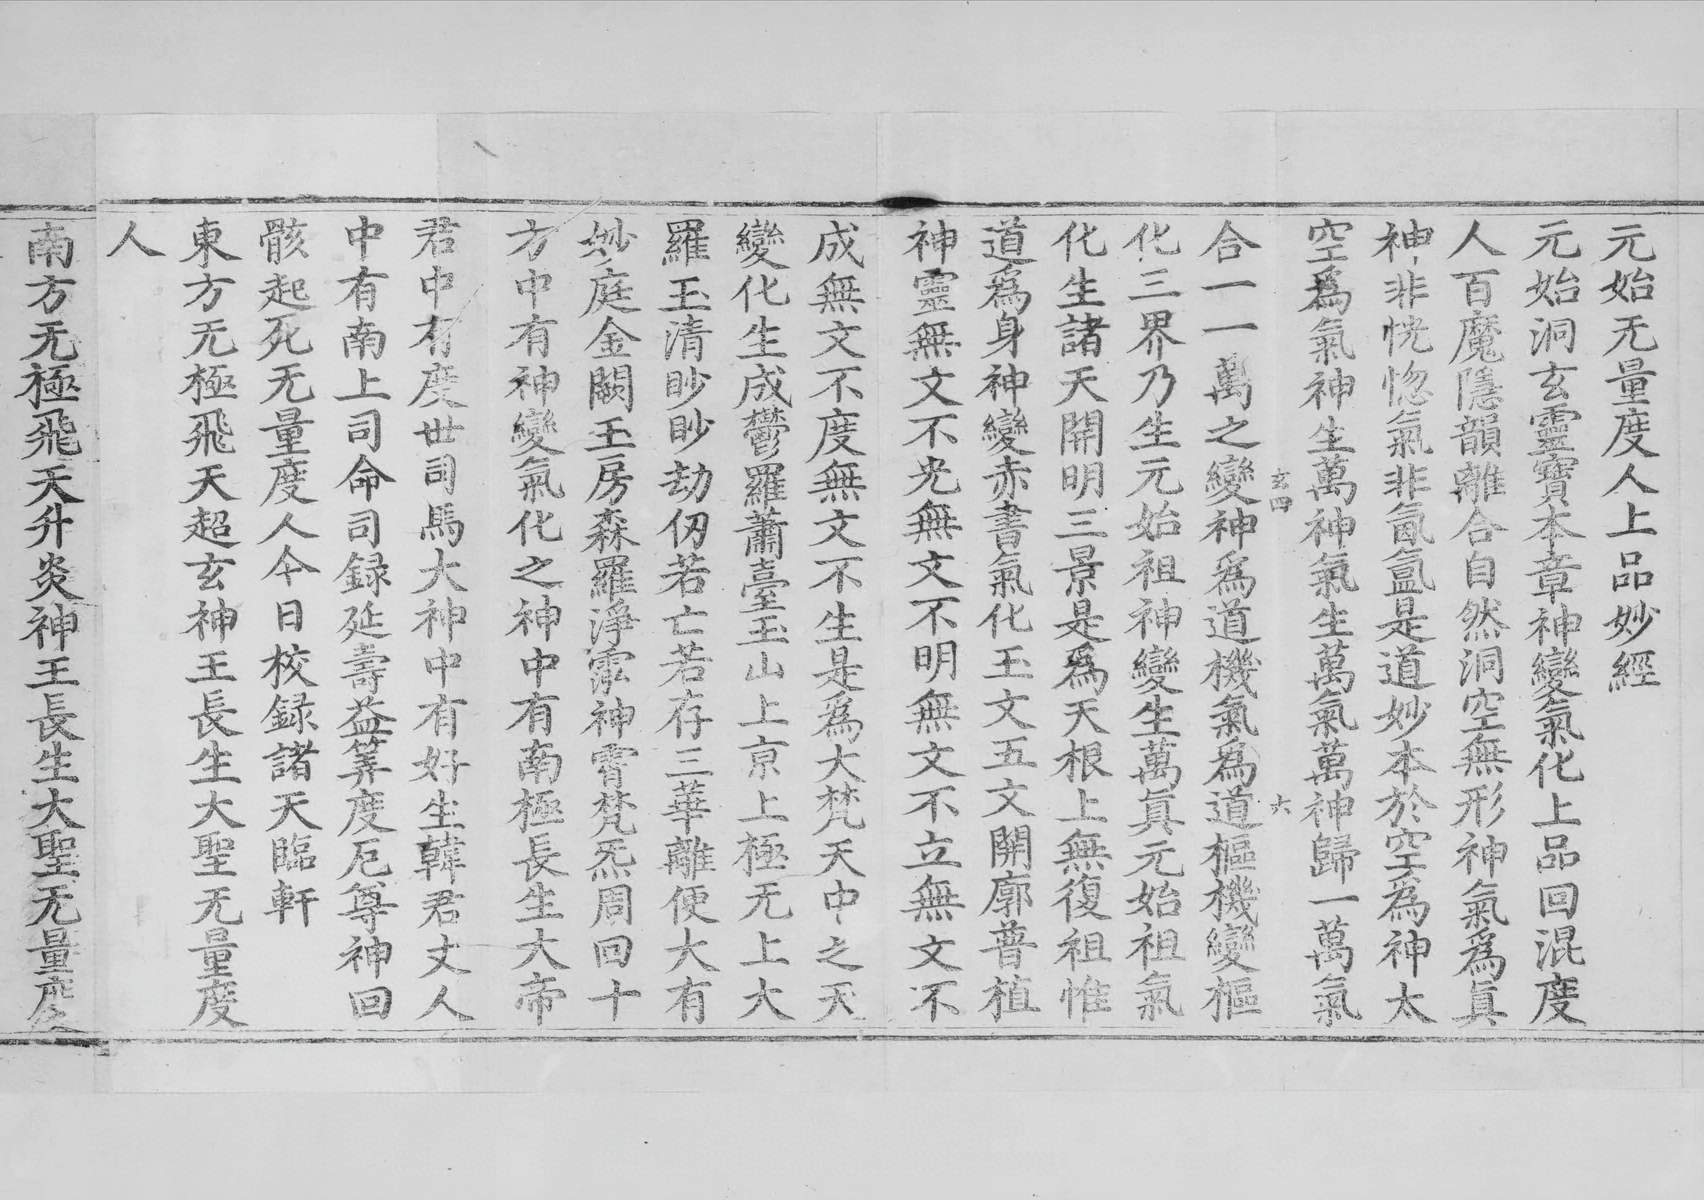 元始无量度人上品妙經
元始洞玄靈寶本章神變氣化上品回混度
人百魔隱韻離合自然洞空無形神氣爲眞
神非恍惚氣非氤氳是道妙本於空為神太
空爲氣神生萬神氣生萬氣萬神歸一萬氣
玄四 六
合一一萬之變神爲道機氣爲道樞機變樞
化三界乃生元始祖神變生萬眞元始祖氣
化生諸天開明三景是爲天根上無復祖惟
道爲身神變赤書氣化玉文五文開廓普植
神靈無文不光無文不明無文不立無文不
成無文不度無文不生是爲大梵天中之天
變化生成鬱羅蕭臺玉山上京上極无上大
羅玉清眇眇劫仞若亡若存三華離便大有
妙庭金闕玉房森羅淨泓神霄梵炁周回十
方中有神變氣化之神中有南極長生大帝
君中有度世司馬大神中有好生韓君丈人
中有南上司命司録延壽益筭度厄尊神回
骸起死无量度人今日校録諸天臨軒
東方无極飛天超玄神王長生大聖无量度
人
南方无極飛天升炎神王長生大聖无量度人